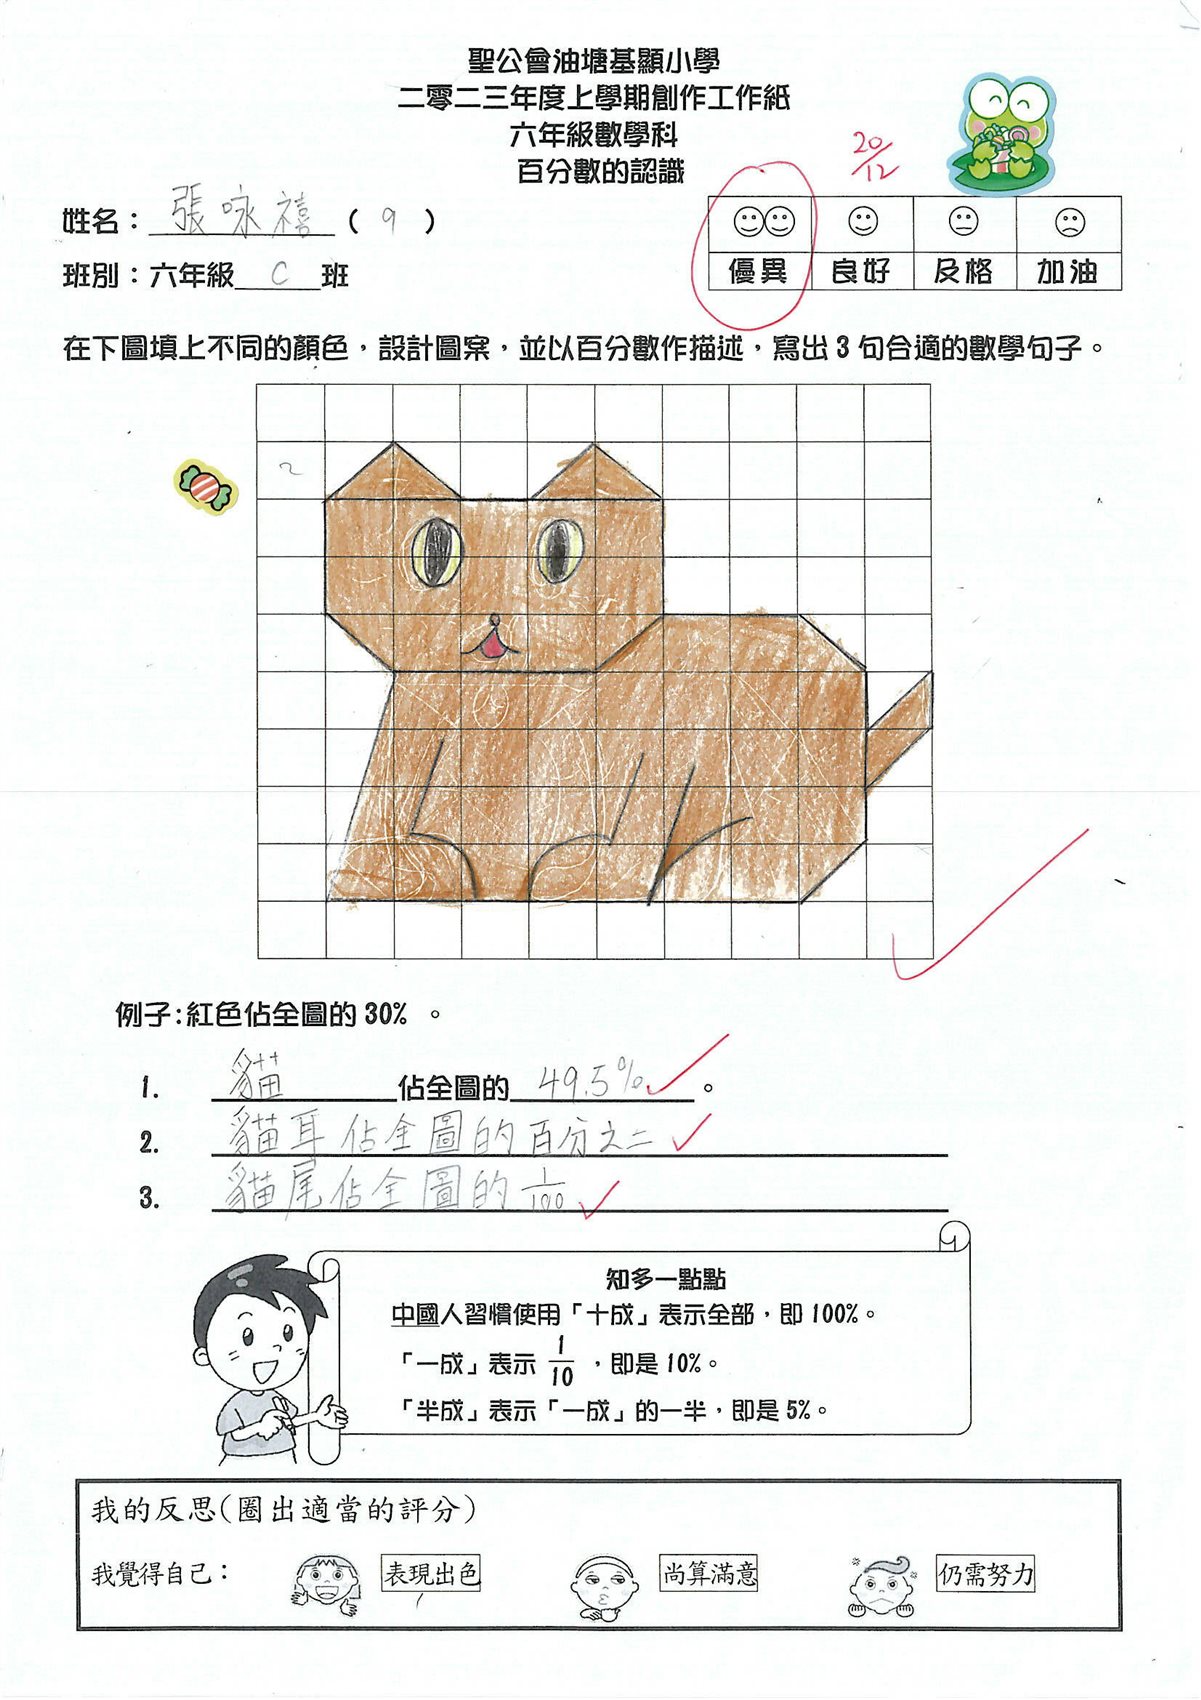 聖公會油塘基顯小學
二零二三年度上學期創作工作紙
六年級數學科
百分數的認識
20/12
姓名：張咏禧（9）
班別：六年級 C 班
優異 良好 及格 加油
在下圖填上不同的顏色，設計圖案，並以百分數作描述，寫出 3 句合適的數學句子。
例子:紅色佔全圖的 30% 。
1. 貓 佔全圖的 49.5% 。
2. 貓耳佔全圖的百分之二
3. 貓尾佔全圖的 1/100
知多一點點
中國人習慣使用「十成」表示全部，即 100%。
「一成」表示 1/10 ，即是 10%。
「半成」表示「一成」的一半，即是 5%。
我的反思(圈出適當的評分)
我覺得自己： 表現出色 尚算滿意 仍需努力